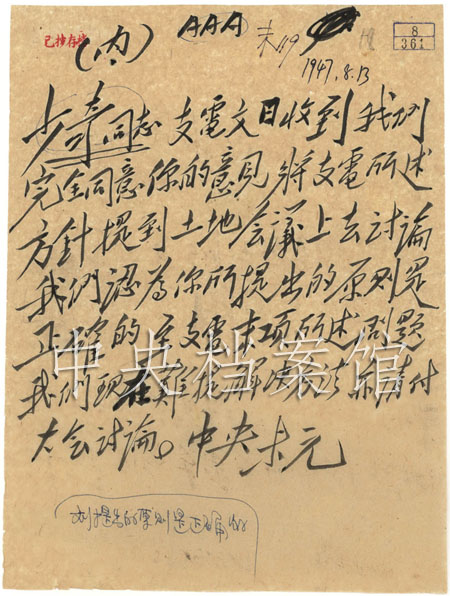 AAA
(内)
已抄存档
未
1947.8.13
8
361
少奇同志 支電文日收到 我們
完全同意你的意見 將支電所述
方針提到土地会議上去討論
我們認為你所提出的原則是
正確的 至支電末項所述問題
我們現在難從解决 請付
大会討論。中央未元
提出的原則是正确的
中央档案馆